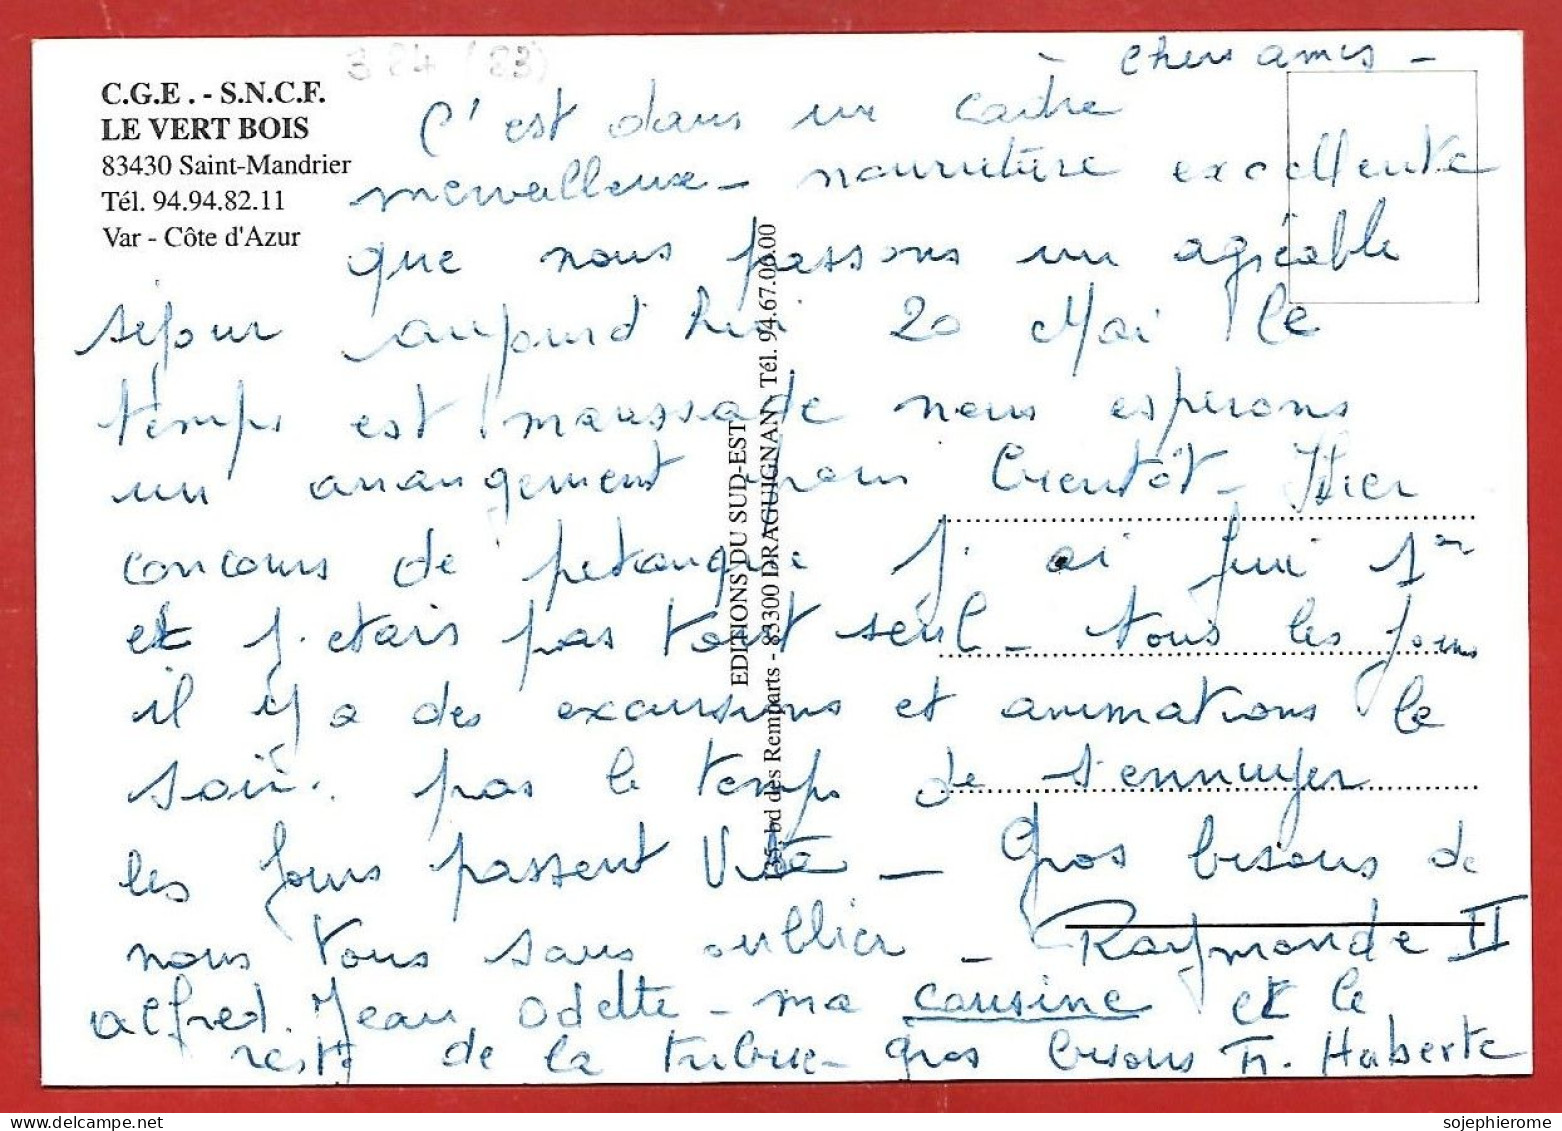 384 (83)
C.G.E. - S.N.C.F.
LE VERT BOIS
83430 Saint-Mandrier
Tél. 94.94.82.11
Var - Côte d'Azur
Chers amis -
C'est dans un cadre
merveilleux - nourriture excellente
que nous passons un agréable
séjour aujourd'hui 20 Mai le
temps est maussade nous esperons
un arrangement pour bientôt - Hier
concours de petanque j'ai fini 1er
et j'etais pas tout seul - tous les jours
il y a des excursions et animations le
soir. pas le temps de s'ennuyer
les jours passent vite - Gros bisous de
nous tous sans oublier - Raymonde II
alfred. Jean, Odette - ma cousine et le
reste de la tribue - gros bisous Fr. Huberte
EDITIONS DU SUD-EST
35, bd des Remparts - 83300 DRAGUIGNAN - Tél. 94.67.00.00
sojephierome